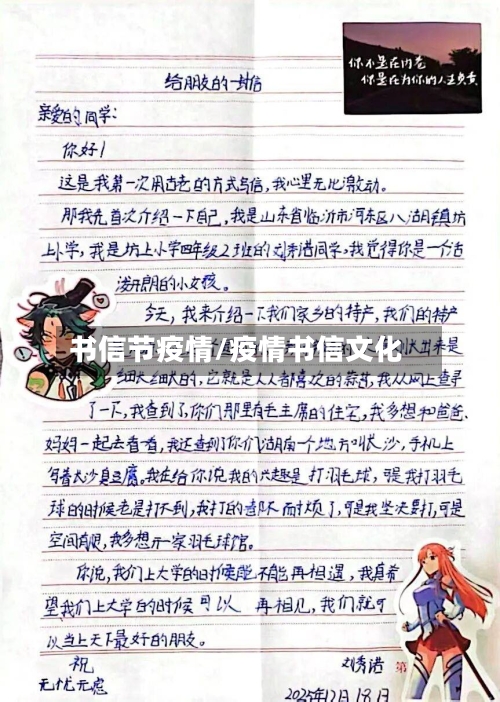 你不是在内卷
你是在为你的人生负责
给朋友的一封信
亲爱的同学:
你好!
这是我第一次用古老的方式写信,我心里无比激动。
那我先首次介绍一下自己,我是山东省临沂市河东区八湖镇坊
上小学,我是坊上小学四年级2班的刘秀浩同学,我觉得你是一个活
泼开朗的小女孩。
今天,我来介绍一下我们家乡的特产,我们的特产
书信节疫情/疫情书信文化
出来是
细细的,它就是人人都喜欢的蒜苗,我从网上查寻
了一下,我查到了你们那里有毛主席的住宅,我多想和爸爸、
妈妈一起去看看,我还查到了你们湖南一个地方叫长沙,手机上
写着长沙臭豆腐。我在给你说我的兴趣是打羽毛球,可是我打羽毛
球的时候老是打不到,我打的都不耐烦了,可是我坚决要打,可是
空间有限,我多想开一家羽毛球馆。
你说,我们上大学的时候能不能再相遇,我真希
望我们上大学的时候可以再相见,我们就可
以当上天下最好的朋友。
祝
刘秀浩
第
无忧无虑
2025年12月18日